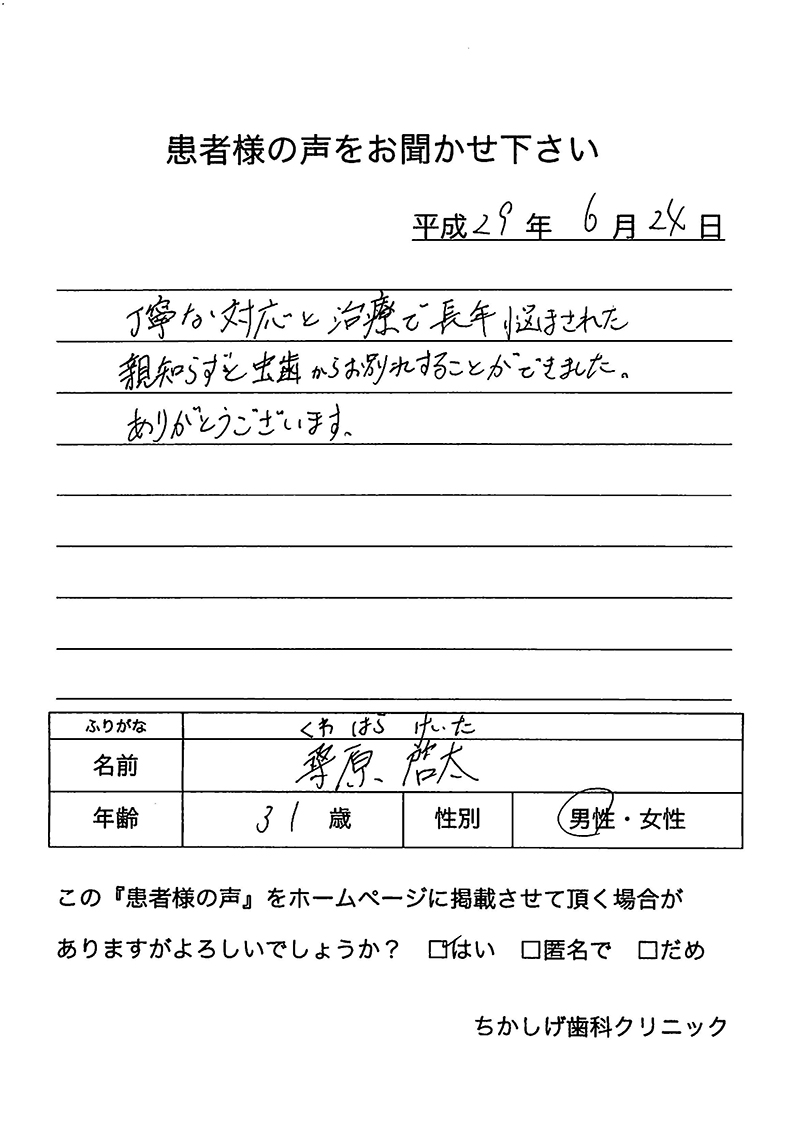 患者様の声をお聞かせ下さい
平成29年 6月24日
丁寧な対応と治療で長年悩まされた
親知らずと虫歯からお別れすることができました。
ありがとうございます、
ふりがな くわ はら けいた
名前 桑原 啓太
年齢 31 歳 性別 男性・女性
この『患者様の声』をホームページに掲載させて頂く場合が
ありますがよろしいでしょうか？ ☑はい □匿名で □だめ
ちかしげ歯科クリニック